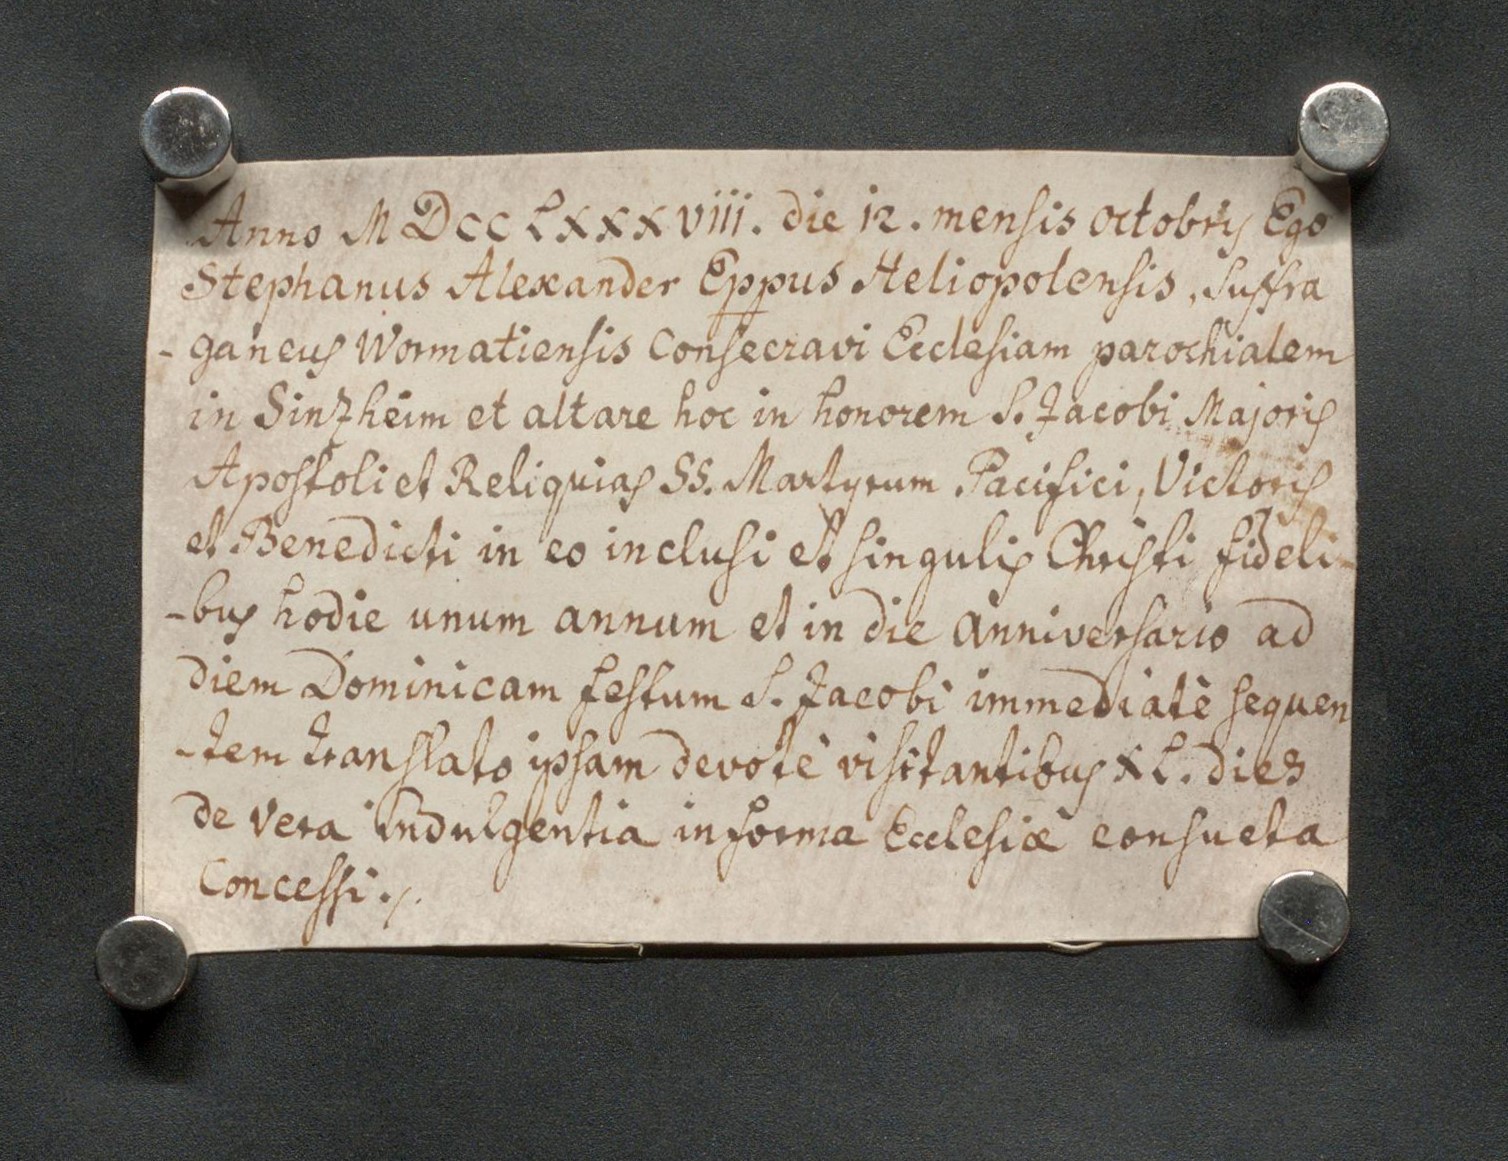 Anno MDCCLXXXVIII. die 12. mensis octobris Ego
Stephanus Alexander Eppus Heliopolensis, Suffra
-ganeus Wormatiensis Consecravi Ecclesiam parochialem
in Sinzheim et altare hoc in honorem S. Jacobi Majoris
Apostoli et Reliquias SS. Martyrum Pacifici, Victoris
et Benedicti in eo inclusi et singulis Christi fideli-
-bus hodie unum annum et in die anniversario ad
diem Dominicam festum S. Jacobi immediatè sequen
-tem translato ipsam devotè visitantibus XL. dies
de vera indulgentia in forma Ecclesiæ consueta
Concessi./.